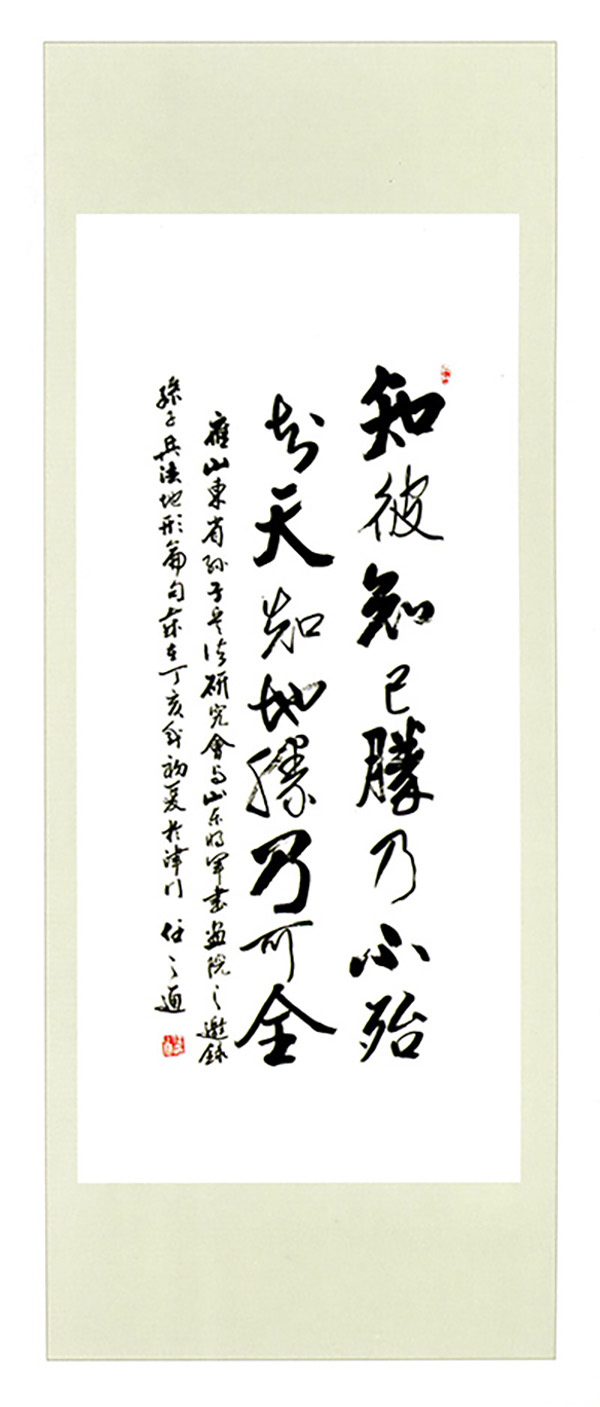 知彼知己勝乃不殆
知天知地勝乃可全
應山東省孙子兵法研究會与山东将军書画院之邀錄
孫子兵法地形篇句歲在丁亥年初夏於津门 任之通